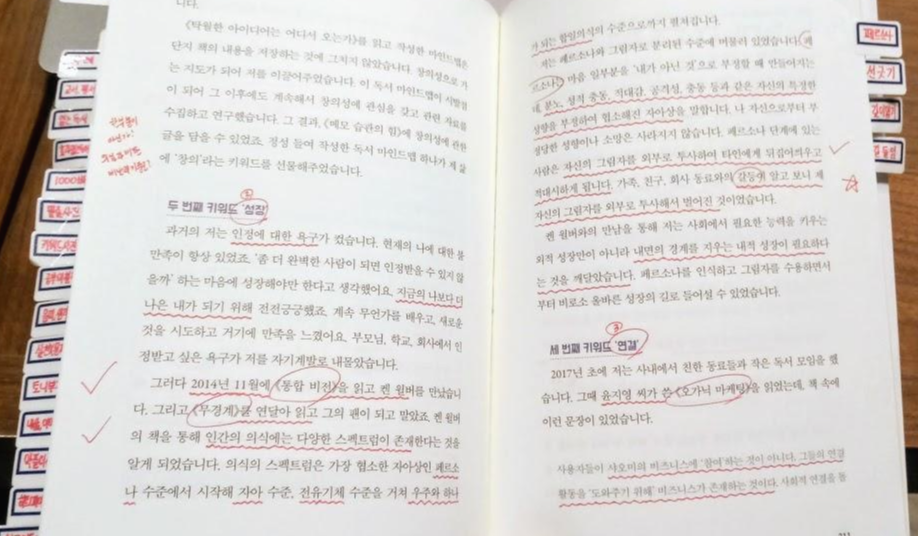 니다.
《탁월한 아이디어는 어디서 오는가》를 읽고 작성한 마인드맵은
단지 책의 내용을 저장하는 것에 그치지 않았습니다. 창의성으로 가
는 지도가 되어 저를 이끌어주었습니다. 이 독서 마인드맵이 시발점
이 되어 그 이후에도 계속해서 창의성에 관심을 갖고 관련 자료를
수집하고 연구했습니다. 그 결과, 《메모 습관의 힘》에 창의성에 관한
글을 담을 수 있었죠. 정성 들여 작성한 독서 마인드맵 하나가 제 삶
에 '창의'라는 키워드를 선물해주었습니다.
②
두 번째 키워드 '성장'
과거의 저는 인정에 대한 욕구가 컸습니다. 현재의 나에 대한 불
만족이 항상 있었죠. '좀 더 완벽한 사람이 되면 인정받을 수 있지 않
을까' 하는 마음에 성장해야만 한다고 생각했어요. 지금의 나보다 더
나은 내가 되기 위해 전전긍긍했죠. 계속 무언가를 배우고, 새로운
것을 시도하고 거기에 만족을 느꼈어요. 부모님, 학교, 회사에서 인
정받고 싶은 욕구가 저를 자기계발로 내몰았습니다.
그러다 2014년 11월에 《통합 비전》을 읽고 켄 윌버를 만났습니
다. 그리고 《무경계》를 연달아 읽고 그의 팬이 되고 말았죠. 켄 윌버
의 책을 통해 인간의 의식에는 다양한 스펙트럼이 존재한다는 것을
알게 되었습니다. 의식의 스펙트럼은 가장 협소한 자아상인 페르소
나 수준에서 시작해 자아 수준, 전유기체 수준을 거쳐 우주와 하나
가 되는 합일의식의 수준으로까지 펼쳐집니다.
저는 페르소나와 그림자로 분리된 수준에 머물러 있었습니다. 페
르소나는 마음 일부분을 '내가 아닌 것'으로 부정할 때 만들어지는
데, 분노, 성적 충동, 적대감, 공격성, 충동 등과 같은 자신의 특정한
성향을 부정하여 협소해진 자아상을 말합니다. 나 자신으로부터 부
정당한 성향이나 소망은 사라지지 않습니다. 페르소나 단계에 있는
사람은 자신의 그림자를 외부로 투사하여 타인에게 뒤집어씌우고
적대시하게 됩니다. 가족, 친구, 회사 동료와의 갈등이 알고 보니 제
자신의 그림자를 외부로 투사해서 벌어진 것이었습니다.
켄 윌버와의 만남을 통해 저는 사회에서 필요한 능력을 키우는
외적 성장만이 아니라 내면의 경계를 지우는 내적 성장이 필요하다
는 것을 깨달았습니다. 페르소나를 인식하고 그림자를 수용하면서
부터 비로소 올바른 성장의 길로 들어설 수 있었습니다.
③
세 번째 키워드 '연결'
2017년 초에 저는 사내에서 친한 동료들과 작은 독서 모임을 했
습니다. 그때 윤지영 씨가 쓴 《오가닉 마케팅》을 읽었는데, 책 속에
이런 문장이 있었습니다.
사용자들이 샤오미의 비즈니스에 '참여'하는 것이 아니다. 그들의 연결
활동을 '도와주기 위해' 비즈니스가 존재하는 것이다. 사회적 연결을 돕
페르소나
선긋기
1000
키워드사전